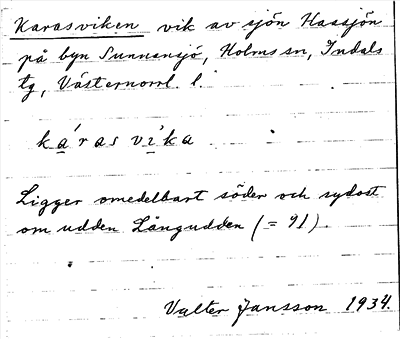 Karasviken vik av sjön Hassjön
på byn Sunnansjö, Holms sn, Indals
tg, Västernorrl. l.
ká̱ras vi̱̍ka
Ligger omedelbart söder och sydost
om udden Långudden (= 91).
Valter Jansson 1934.